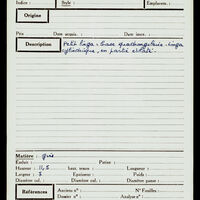 Indice : Style : Emplacem. :
Origine
Prix Date acquis. : Date inv. :
Description Petit linga - base quadrangulaire - linga
cylindrique, en partie éclaté.
Matière : grès
Endim : Patine :
Hauteur : 11,5 Haut. tenon : Longueur :
Largeur : 5 Épaisseur : Profondeur :
Diamètre ext. : Diamètre col. : Diamètre panse :
Références Ancien n° : N° Fouilles :
Dossier n° : Analyse n° :